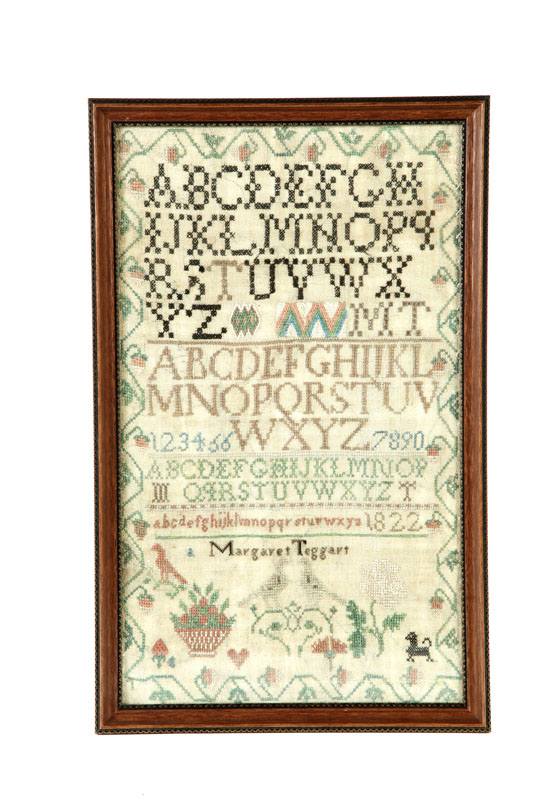 ABCDEFGH
IJKLMNOPQ
RSTUVWX
YZ MT
ABCDEFGHIJKL
MNOPQRSTUV
123466 WXYZ 7890
ABCDEFGHIJKLMNOP
QRSTUVWXYZ
abcdefghijklmnopqrsturwxyz 1822
a Margaret Teggart